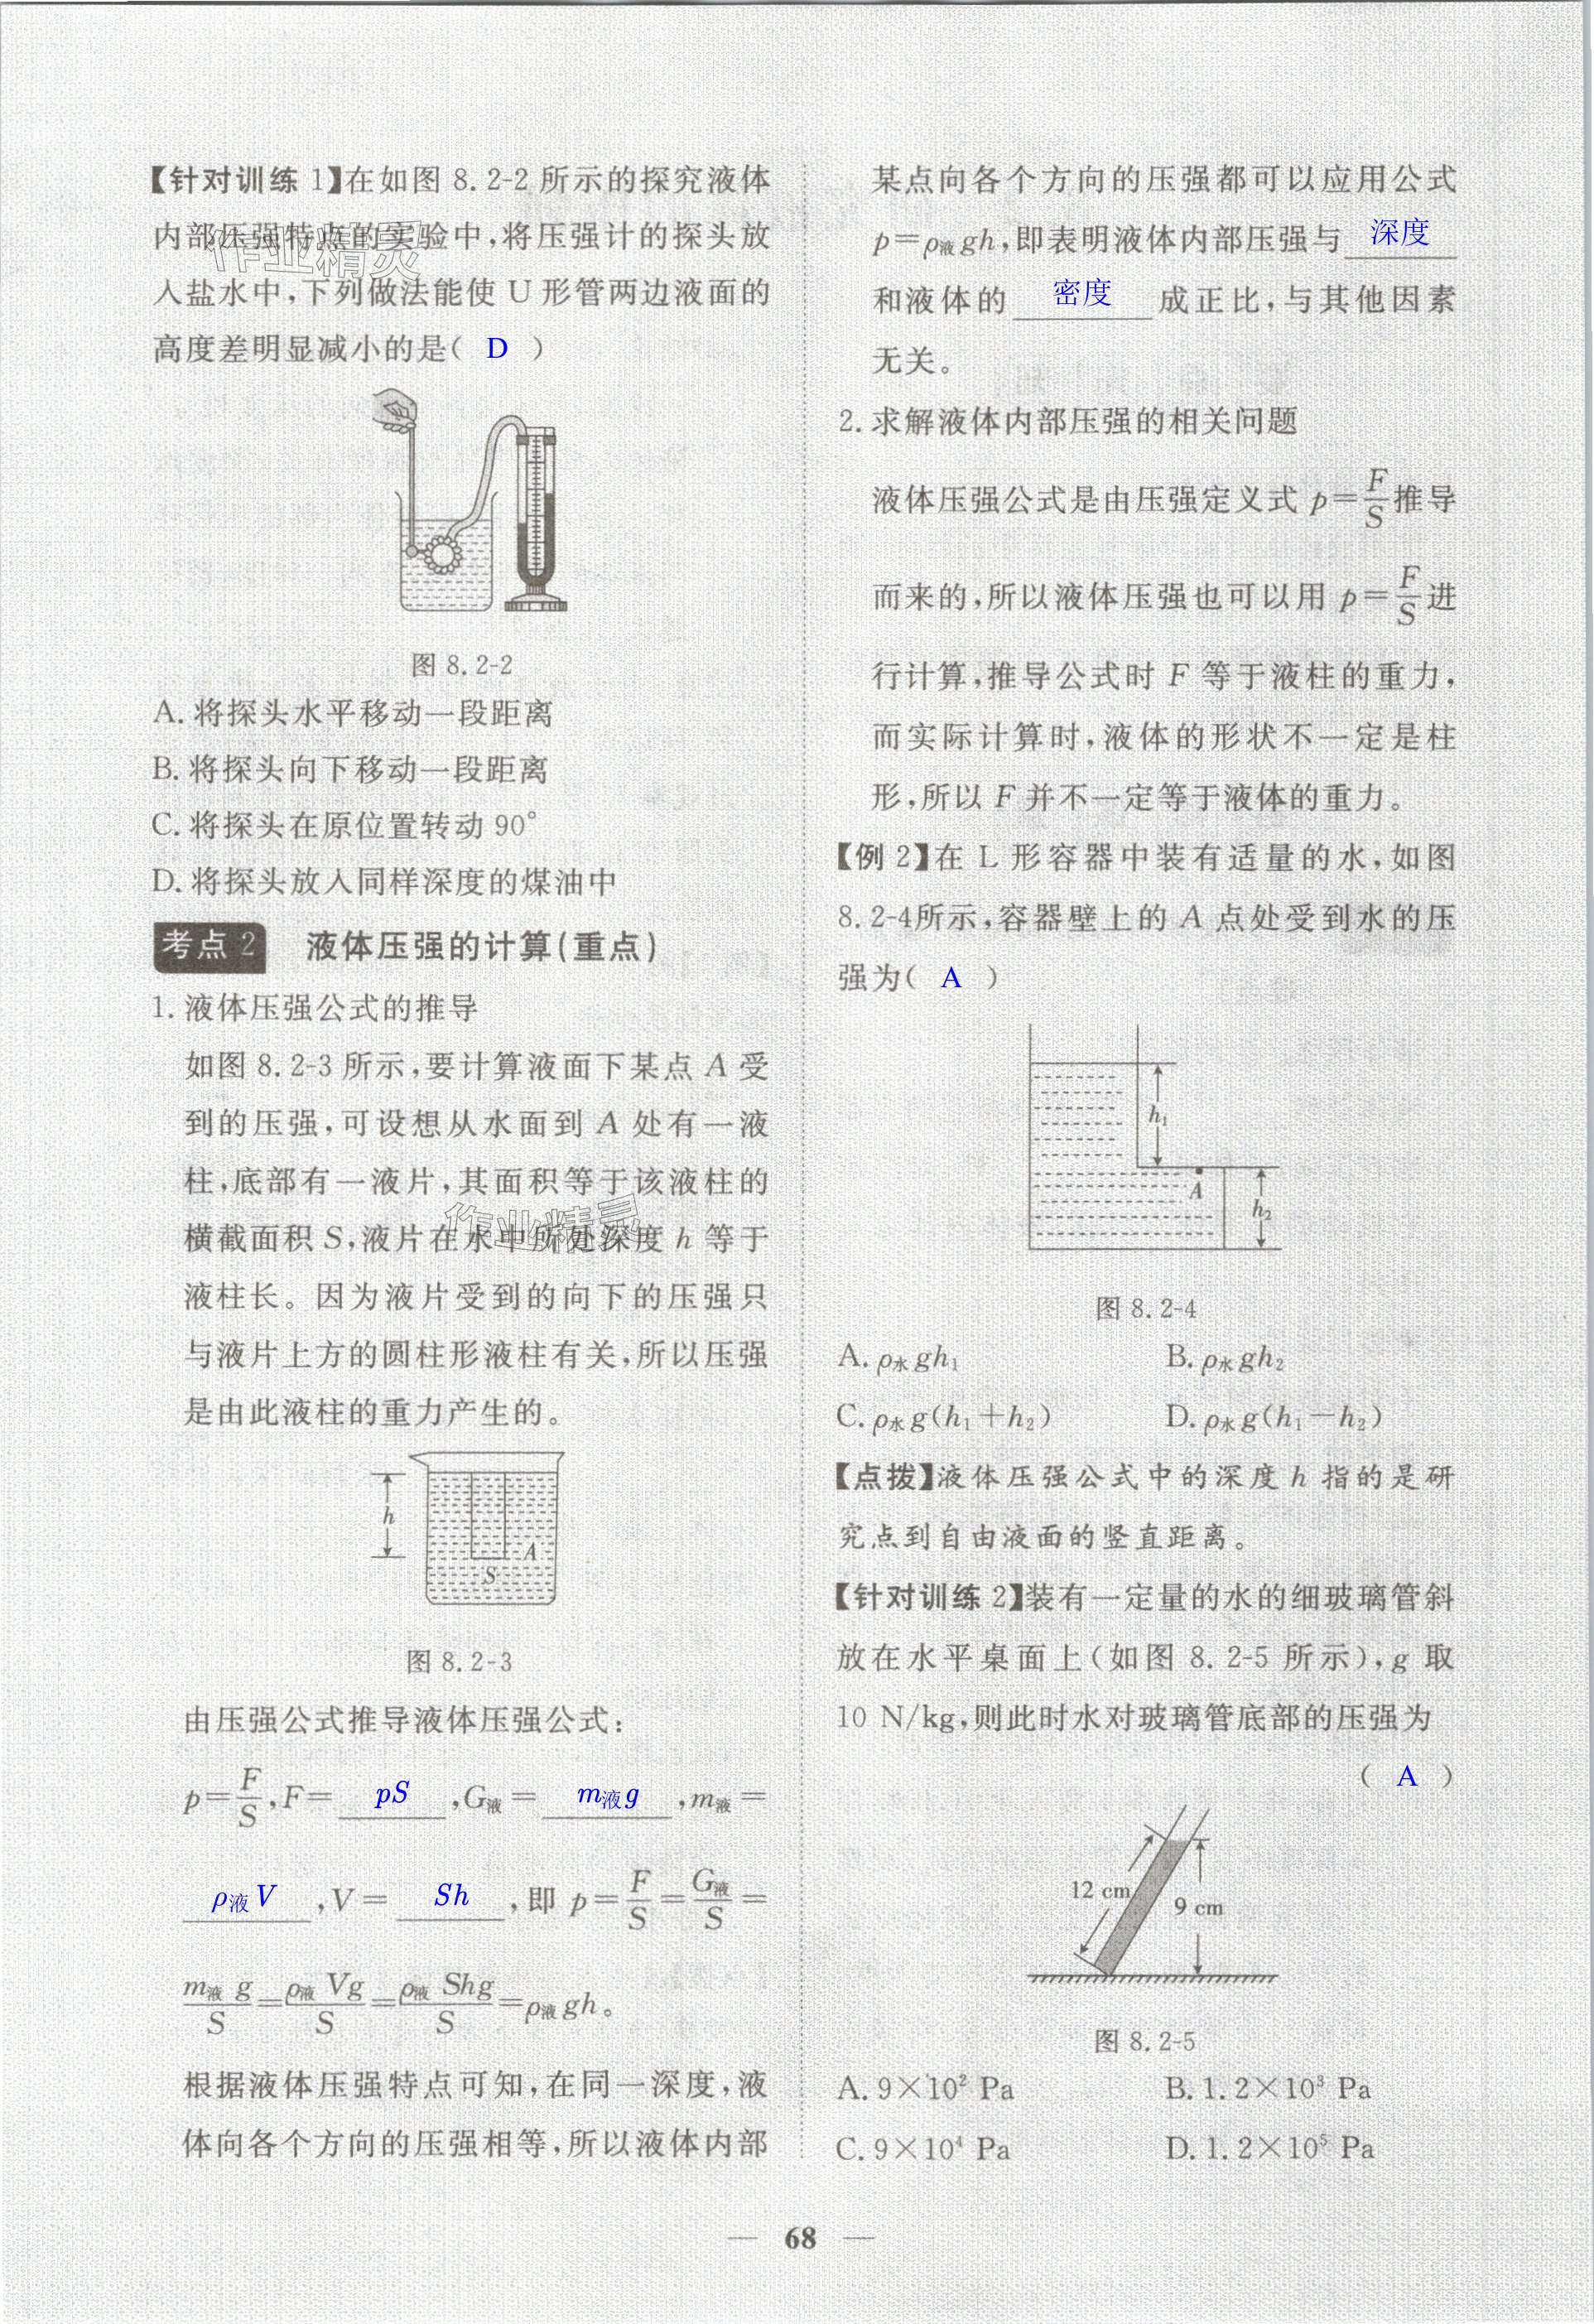 【针对训练 1】在如图 8.2-2 所示的探究液体
内部压强特点的实验中,将压强计的探头放
入盐水中,下列做法能使 U 形管两边液面的
高度差明显减小的是( D )
图 8.2-2
A. 将探头水平移动一段距离
B. 将探头向下移动一段距离
C. 将探头在原位置转动 90°
D. 将探头放入同样深度的煤油中
考点 2 液体压强的计算(重点)
1. 液体压强公式的推导
如图 8.2-3 所示,要计算液面下某点 A 受
到的压强,可设想从水面到 A 处有一液
柱,底部有一液片,其面积等于该液柱的
横截面积 S,液片在水中所处深度 h 等于
液柱长。因为液片受到的向下的压强只
与液片上方的圆柱形液柱有关,所以压强
是由此液柱的重力产生的。
h
A
S
图 8.2-3
由压强公式推导液体压强公式:
p=F/S,F= pS ,G液= m液g ,m液=
ρ液V ,V= Sh ,即 p=F/S=G液/S=
m液 g/S=ρ液 Vg/S=ρ液 Shg/S=ρ液 gh。
根据液体压强特点可知,在同一深度,液
体向各个方向的压强相等,所以液体内部
某点向各个方向的压强都可以应用公式
p=ρ液 gh,即表明液体内部压强与 深度
和液体的 密度 成正比,与其他因素
无关。
2. 求解液体内部压强的相关问题
液体压强公式是由压强定义式 p=F/S推导
而来的,所以液体压强也可以用 p=F/S进
行计算,推导公式时 F 等于液柱的重力,
而实际计算时,液体的形状不一定是柱
形,所以 F 并不一定等于液体的重力。
【例 2】在 L 形容器中装有适量的水,如图
8.2-4所示,容器壁上的 A 点处受到水的压
强为( A )
h₁
A
h₂
图 8.2-4
A. ρ水 gh₁ B. ρ水 gh₂
C. ρ水 g(h₁+h₂) D. ρ水 g(h₁-h₂)
【点拨】液体压强公式中的深度 h 指的是研
究点到自由液面的竖直距离。
【针对训练 2】装有一定量的水的细玻璃管斜
放在水平桌面上(如图 8.2-5 所示),g 取
10 N/kg,则此时水对玻璃管底部的压强为
( A )
12 cm
9 cm
图 8.2-5
A. 9×10² Pa B. 1.2×10³ Pa
C. 9×10⁴ Pa D. 1.2×10⁵ Pa
— 68 —
作业精灵
作业精灵